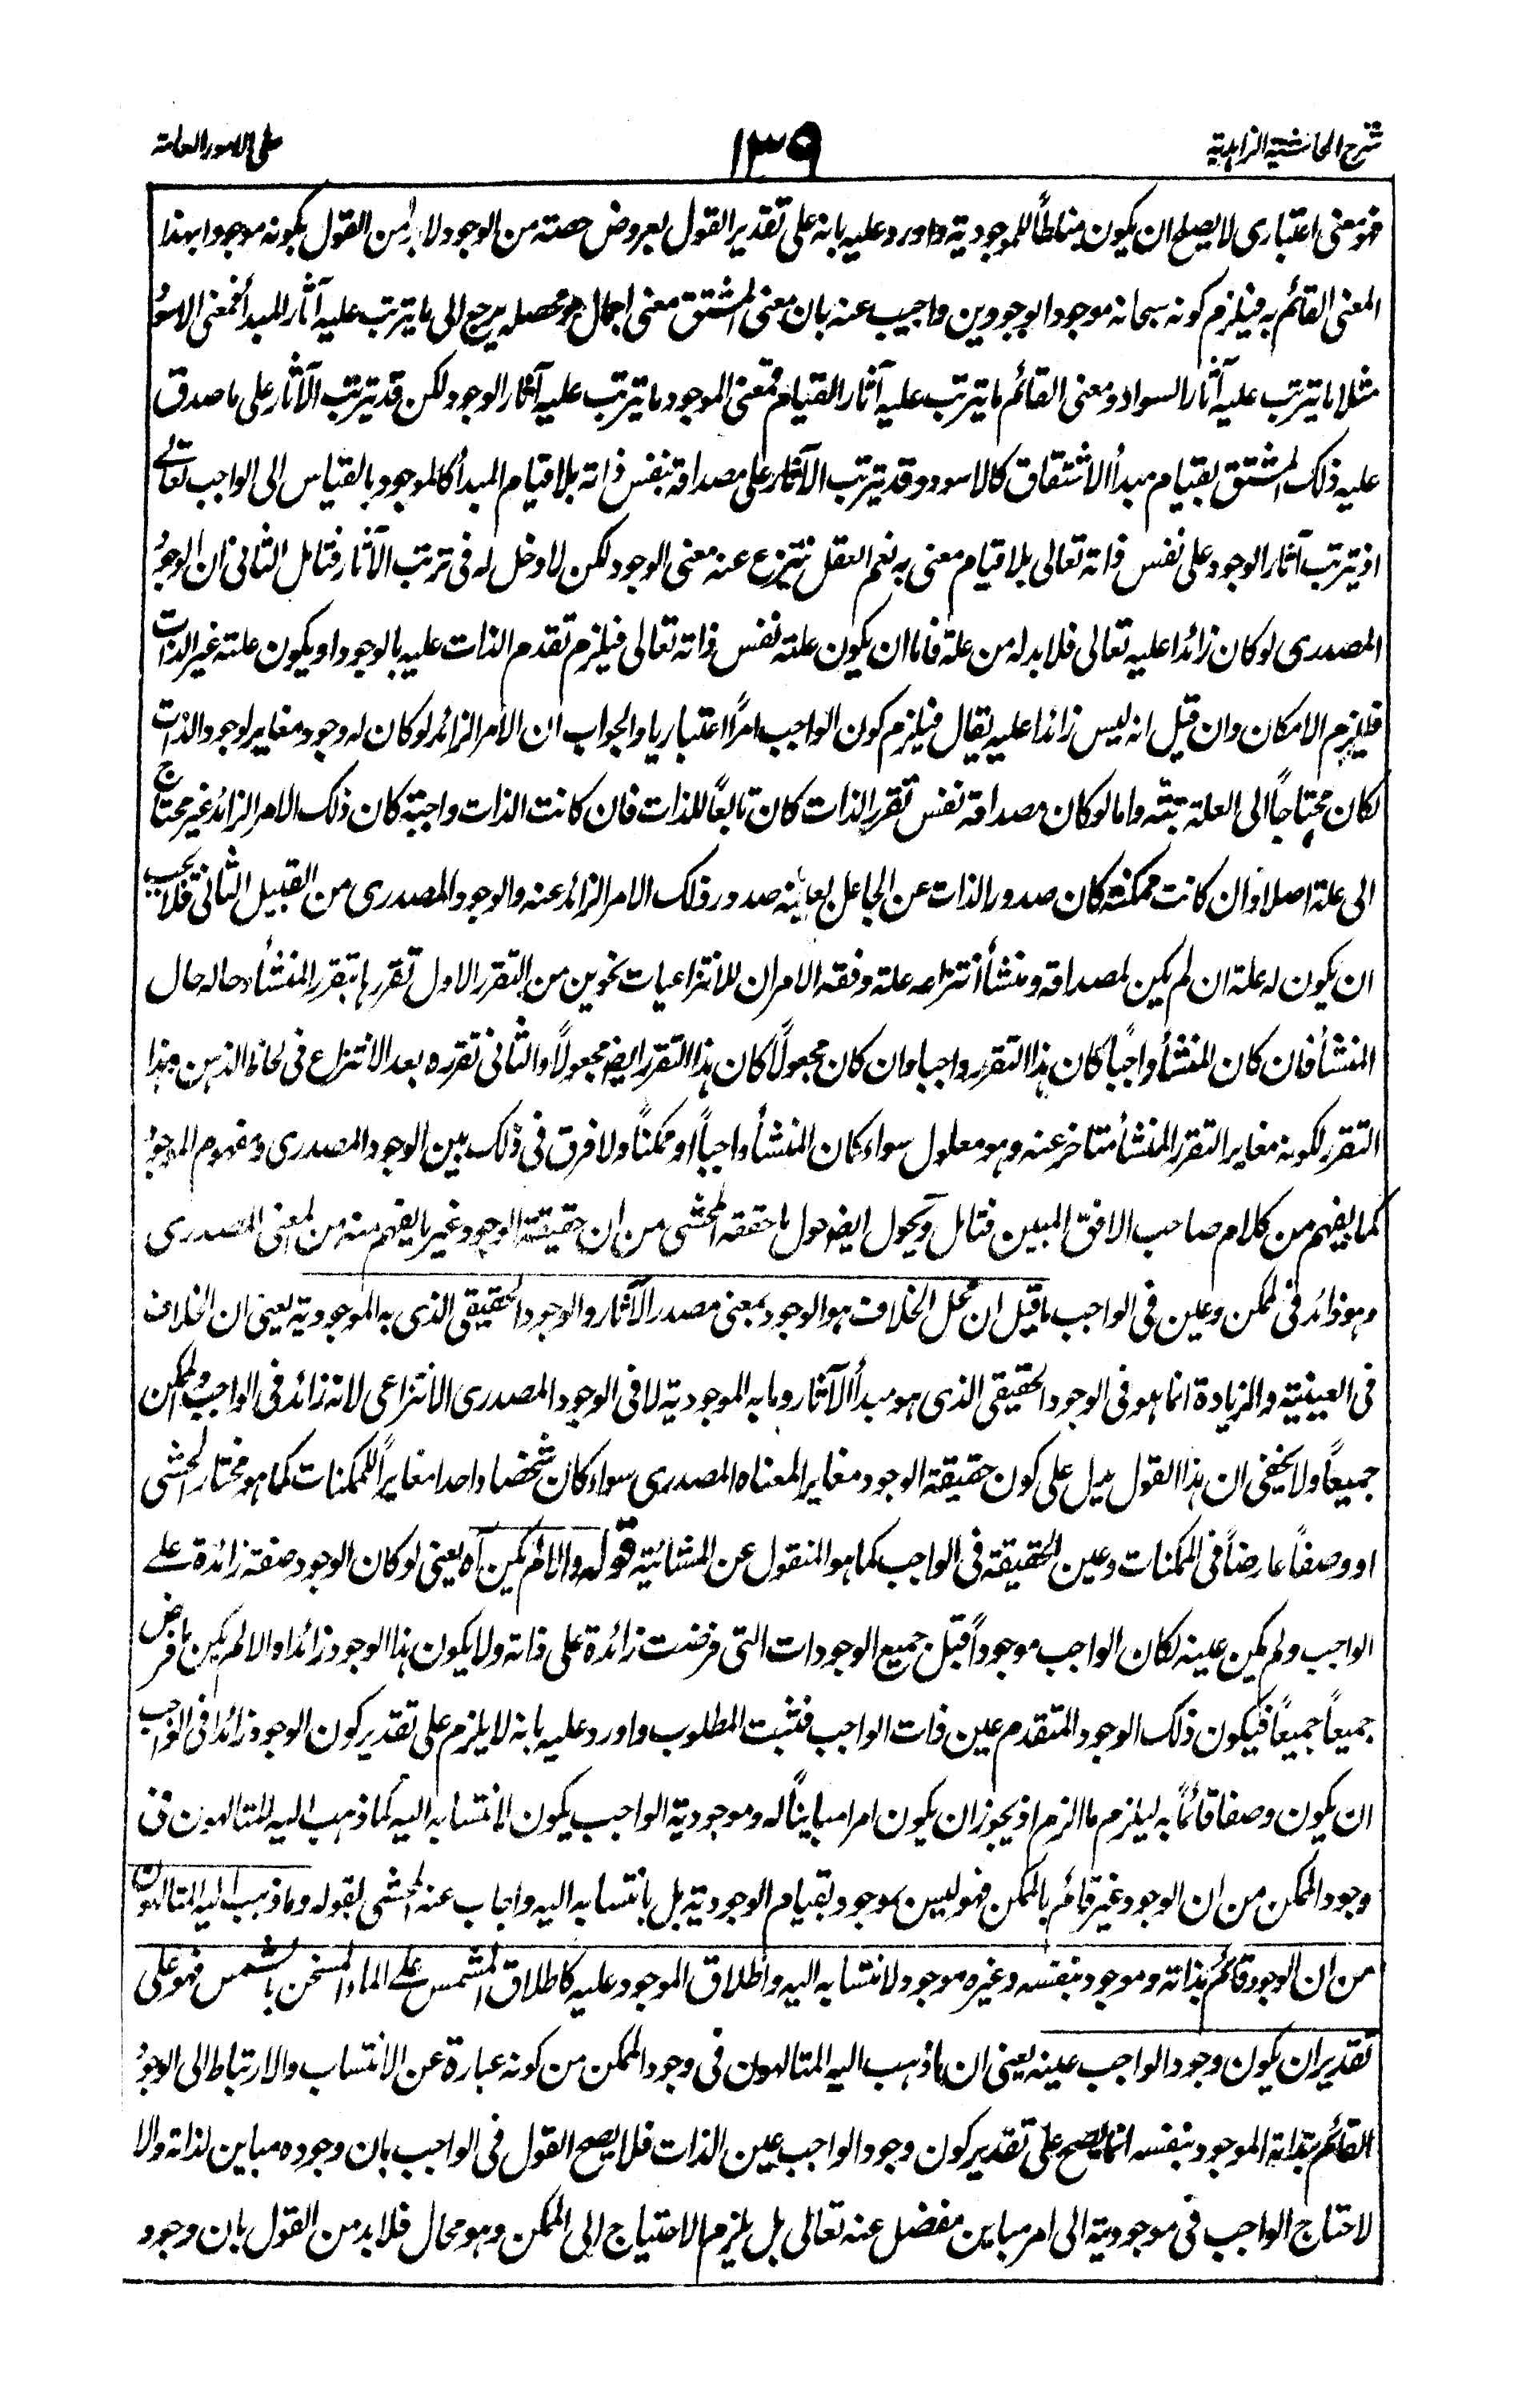 شرح الحاشية الزاهدية
١٣٩
على الامور العامة
فهو معنى اعتبارى لا يصلح ان يكون مناطاً للموجودية واورد عليه بانه على تقدير القول بعروض حصته من الوجود لابد من القول بكونه موجودا بهذا
المعنى القائم به فيلزم كونه سبحانه موجودا بوجودين واجيب عنه بان معنى المشتق معنى اجمالى هو محصله يرجع الى ما يترتب عليه آثار المبدأ فمعنى الاسود
مثلا ما يترتب عليه آثار السواد ومعنى القائم ما يترتب عليه آثار القيام فمعنى الموجود ما يترتب عليه آثار الوجود لكن قد يترتب الآثار على ما صدق
عليه ذلك المشتق بقيام مبدأ الاشتقاق كالاسود وقد يترتب الآثار على مصداقه بنفس ذاته بلا قيام المبدأ كالموجود بالقياس الى الواجب تعالى
اذ يترتب آثار الوجود على نفس ذاته تعالى بلا قيام معنى به نعم العقل ينتزع عنه معنى الوجود لكن لا دخل له فى ترتب الآثار فتامل الثانى ان الوجود
المصدرى لو كان زائدا عليه تعالى فلابد له من علة فاما ان يكون علته نفس ذاته تعالى فيلزم تقدم الذات عليه بالوجود او يكون علته غير الذات
فيلزم الامكان وان قيل انه ليس زائدا عليه يقال فيلزم كون الواجب امراً اعتباريا والجواب ان الامر الزائد لو كان له وجود مغاير لوجود الذات
لكان محتاجاً الى العلة بتة واما لو كان مصداقه نفس تقرر الذات كان تابعاً للذات فان كانت الذات واجبة كان ذلك الامر الزائد غير محتاج
الى علة اصلا وان كانت ممكنة كان صدور الذات عن الجاعل بعينه صدور ذلك الامر الزائد عنه والوجود المصدرى من القبيل الثانى فلا يجب
ان يكون له علة ان لم يكن لمصداقه ومنشأ انتزاعه علة وفقه الامر ان للانتزاعيات نحوين من التقرر الاول تقررها بتقرر المنشأ وحاله حال
المنشأ فان كان المنشأ واجباً كان هذا التقرر واجبا وان كان مجعولاً كان هذا التقرر ايض مجعولاً والثانى تقرره بعد الانتزاع فى لحاظ الذهن وهذا
التقرر لكونه مغايرا لتقرر المنشأ متاخر عنه وهو معلول سواء كان المنشأ واجباً او ممكناً ولا فرق فى ذلك بين الوجود المصدرى ومفهوم الموجود
كما يفهم من كلام صاحب الافق المبين فتامل ويحول ايض حول ما حققه المحشى من ان حقيقة الوجود غير ما يفهم منه من المعنى المصدرى
وهو زائد فى الممكن وعين فى الواجب ما قيل ان محل الخلاف هو الوجود بمعنى مصدر الآثار والوجود الحقيقى الذى به الموجودية يعنى ان الخلاف
فى العينية والزيادة انما هو فى الوجود الحقيقى الذى هو مبدأ الآثار وما به الموجودية لا فى الوجود المصدرى الانتزاعى لانه زائد فى الواجب والممكن
جميعاً ولا يخفى ان هذا القول يدل على كون حقيقة الوجود مغايرا لمعناه المصدرى سواء كان شخصا واحدا مغايراً للممكنات كما هو مختار المحشى
او وصفاً عارضاً فى الممكنات وعين الحقيقة فى الواجب كما هو المنقول عن المشائية قوله والا لم يكن آه يعنى لو كان الوجود صفة زائدة على
الواجب ولم يكن عينه لكان الواجب موجوداً قبل جميع الوجودات التى فرضت زائدة على ذاته ولا يكون هذا الوجود زائدا والا لم يكن ما فرض
جميعاً جميعاً فيكون ذلك الوجود المتقدم عين ذات الواجب فثبت المطلوب واورد عليه بانه لا يلزم على تقدير كون الوجود زائدا فى الواجب
ان يكون وصفا قائماً به ليلزم ما الزم اذ يجوز ان يكون امرا مبايناً له وموجودية الواجب يكون لانتسابه اليه كما ذهب اليه المتالهون فى
وجود الممكن من ان الوجود غير قائم بالممكن فهو ليس بموجود بقيام الوجود به بل بانتسابه اليه واجاب عنه المحشى بقوله وما ذهب اليه المتالهون
من ان الوجود قائم بذاته وموجود بنفسه وغيره موجود لانتسابه اليه واطلاق الموجود عليه كاطلاق المشمس على الماء المسخن بالشمس فهو على
تقدير ان يكون وجود الواجب عينه يعنى ان ما ذهب اليه المتالهون فى وجود الممكن من كونه عبارة عن الانتساب والارتباط الى الوجود
القائم بذاته الموجود بنفسه انما يصح على تقدير كون وجود الواجب عين الذات فلا يصح القول فى الواجب بان وجوده مباين لذاته والا
لاحتاج الواجب فى موجوديته الى امر مباين منفصل عنه تعالى بل يلزم الاحتياج الى الممكن وهو محال فلابد من القول بان وجود